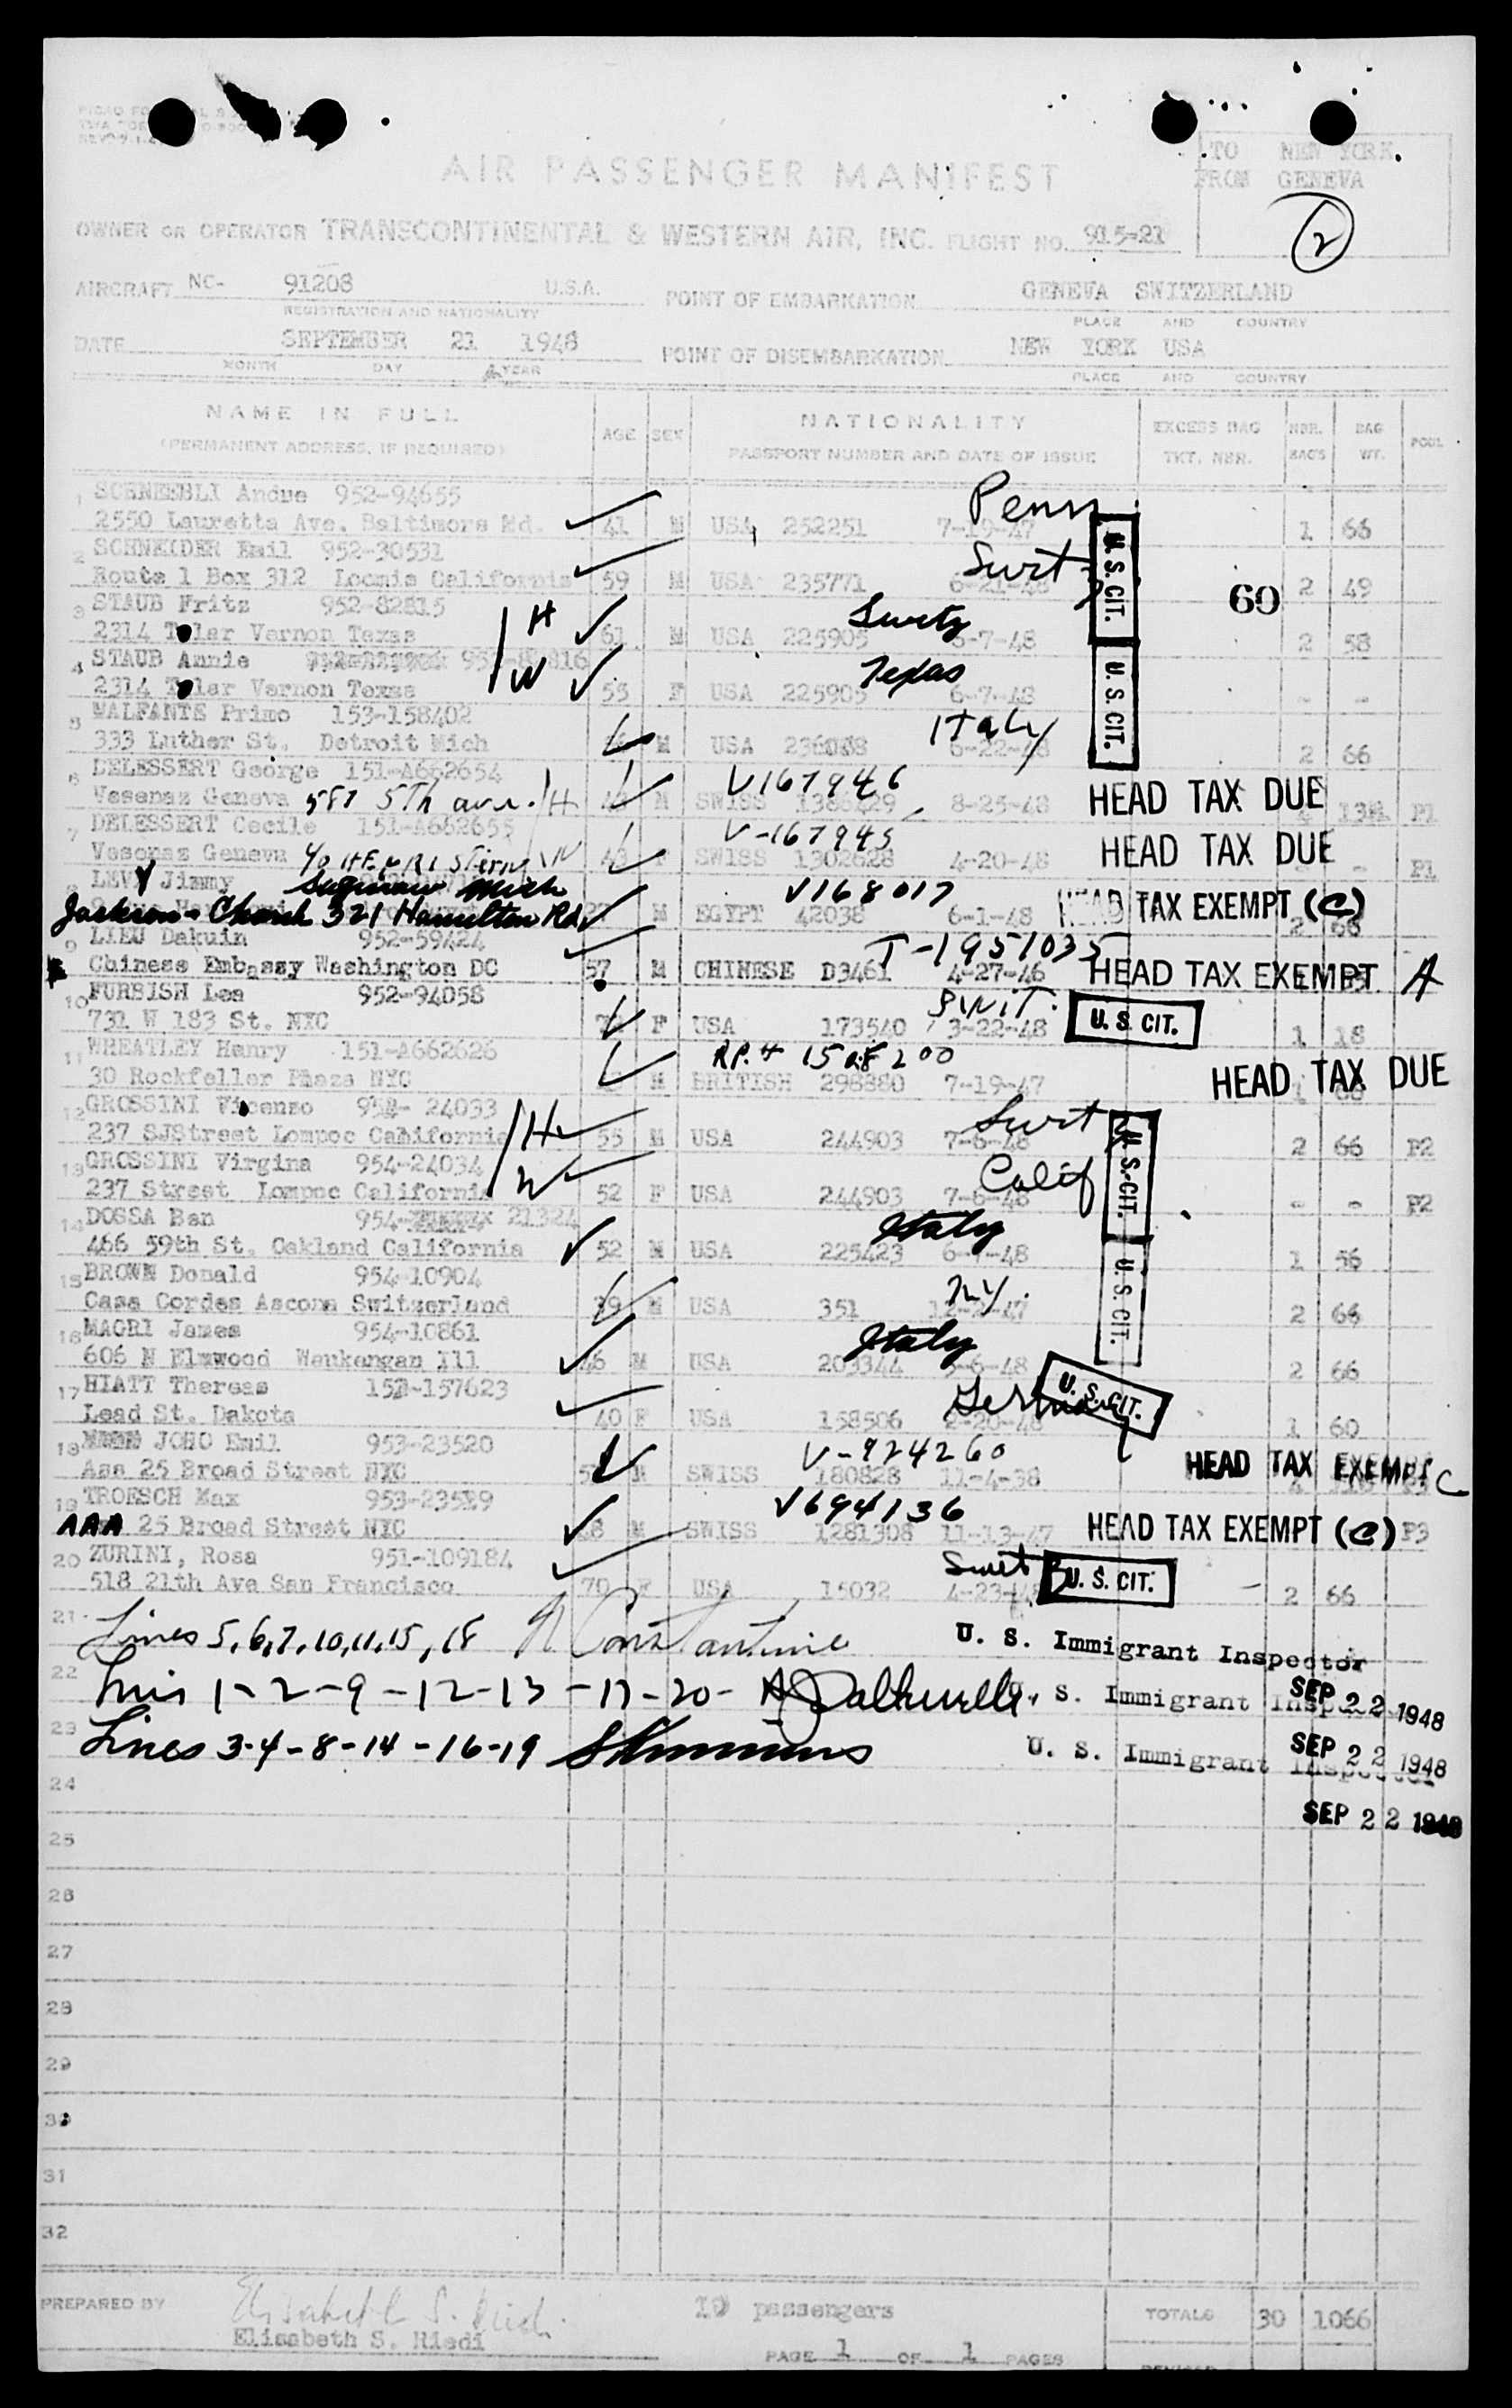 TO NEW YORK.
FROM GENEVA
AIR PASSENGER MANIFEST
2
OWNER OR OPERATOR TRANSCONTINENTAL & WESTERN AIR, INC. FLIGHT NO. 915-21
AIRCRAFT NC- 91208 U.S.A. POINT OF EMBARKATION GENEVA SWITZERLAND
REGISTRATION AND NATIONALITY PLACE AND COUNTRY
DATE SEPTEMBER 21 1948 POINT OF DISEMBARKATION NEW YORK USA
MONTH DAY YEAR PLACE AND COUNTRY
NAME IN FULL AGE SEX NATIONALITY EXCESS BAG NBR. BAG POOL
(PERMANENT ADDRESS, IF REQUIRED) PASSPORT NUMBER AND DATE OF ISSUE TKT. NBR. BAGS WT.
1 SCHNEEBLI Andue 952-94655 Penn
2550 Lauretta Ave. Baltimore Md. 41 M USA 252251 7-19-47 U.S. CIT. 1 66
2 SCHNEIDER Emil 952-30531 Swit
Route 1 Box 312 Loomis California 59 M USA 235771 6-21-48 60 2 49
3 STAUB Fritz 952-82815 H
2314 Tolar Vernon Texas 61 M USA 225905 6-7-48 2 58
4 STAUB Annie W Texas U. S. CIT.
2314 Tolar Vernon Texas 55 F USA 225905 6-7-48 - -
5 MALFANTE Primo 153-158402 Italy
333 Luther St. Detroit Mich M USA 6-22-48 2 66
6 DELESSERT George 151-A662654 V167946
Vesenaz Geneva 587 5th ave. H M SWISS 8-25-48 HEAD TAX DUE P1
7 DELESSERT Cecile 151-A662655 V-167945
Vesenaz Geneva W 43 F SWISS 1302628 4-20-48 HEAD TAX DUE - P1
8 LEVY Jimmy Saginaw Mich V168017
321 Hamilton Rd. M EGYPT 42038 6-1-48 HEAD TAX EXEMPT (C) 2 66
9 LIEU Dakuin 952-59424 T-1951035
Chinese Embassy Washington DC 57 M CHINESE D3461 4-27-46 HEAD TAX EXEMPT A
10 FURBISH Lea 952-94058 SWIT.
731 W 183 St. NYC F USA 173540 3-22-48 U. S. CIT. 1 18
11 WHEATLEY Henry 151-A662626
30 Rockfeller Plaza NYC M BRITISH 298880 7-19-47 HEAD TAX DUE
12 GROSSINI Vicenzo 952- 24033 H Swit
237 SJStreet Lompoc California 55 M USA 244903 7-6-48 U. S. CIT. 2 66 P2
13 GROSSINI Virgina 954-24034 W Calif
237 Street Lompoc California 52 F USA 244903 7-6-48 - - P2
14 DOSSA Ben 954- 21324 Italy
466 59th St. Oakland California 52 M USA 225423 6-7-48 1 56
15 BROWN Donald 954-10904 N.Y. U. S. CIT.
Casa Cordes Ascona Switzerland 39 M USA 351 12-2-47 2 66
16 MAGRI James 954-10861 Italy
606 N Elmwood Waukengan Ill 46 M USA 203344 2 66
17 HIATT Theresa U. S. CIT.
Lead St. Dakota 40 F USA 158506 2-20-48 1 60
18 JOHO Emil 953-23520 V-924260
Aaa 25 Broad Street NYC M SWISS 180828 11-4-38 HEAD TAX EXEMPT C
19 TROESCH Max V694136
AAA 25 Broad Street NYC M SWISS 1281308 11-13-47 HEAD TAX EXEMPT (C) P3
20 ZURINI, Rosa 951-109184 Swit
518 21th Ave San Francisco 70 F USA 15032 U. S. CIT. - 2 66
21 Lines 5, 6, 7, 10, 11, 15, 18 N Constantine U. S. Immigrant Inspector
22 Lines 1-2-9-12-13-17-20- U. S. Immigrant Inspector SEP 22 1948
23 Lines 3-4-8-14-16-19 U. S. Immigrant Inspector SEP 22 1948
24 SEP 22 1948
25
26
27
28
29
30
31
32
PREPARED BY Elisabeth S. Riedi passengers TOTALS 30 1066
Elisabeth S. Riedi
PAGE 1 OF 1 PAGES